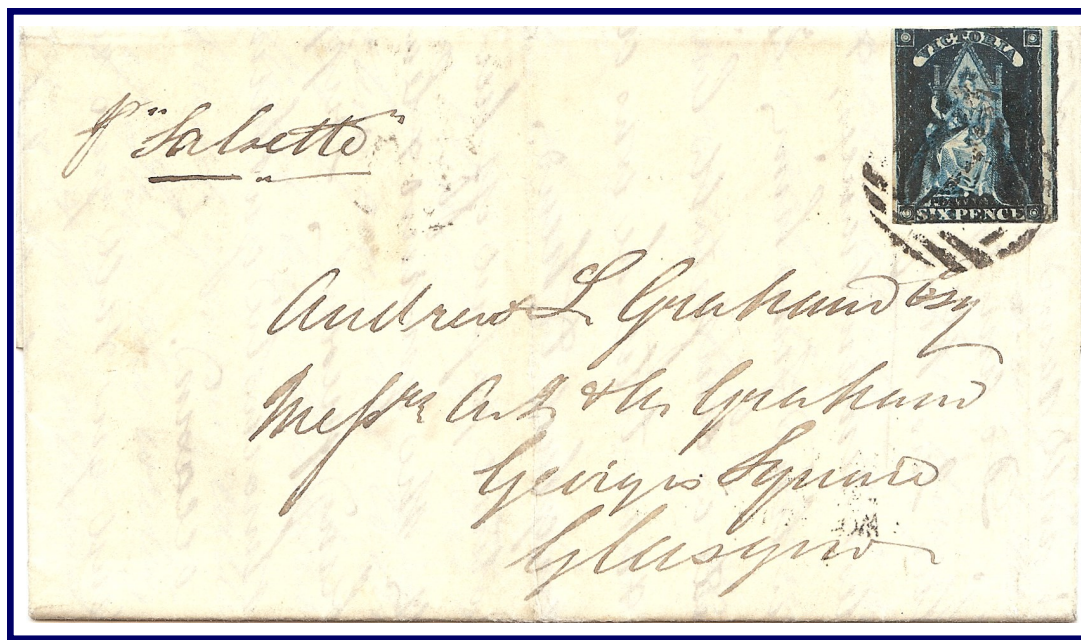 VICTORIA
SIX PENCE
pr "Salsette"
Andrew L Graham Esq
Messrs A. L. & Graham
Georges Square
Glasgow